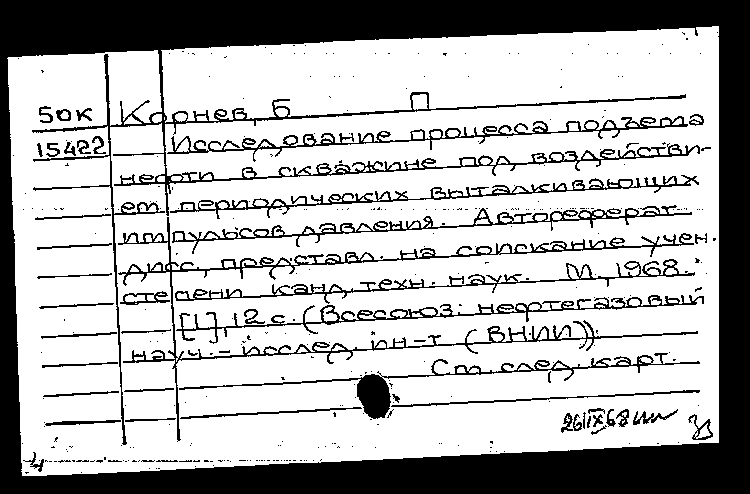 50к Корнев, Б П
15422 Исследование процесса подъема
нефти в скважине под воздействи-
ем периодических выталкивающих
импульсов давления. Автореферат
дисс., представл. на соискание учен.
степени канд. техн. наук. М., 1968.
[1], 12 с. (Всесоюз. нефтегазовый
науч.-исслед. ин-т (ВНИИ)).
См. след. карт.
26/IX 68